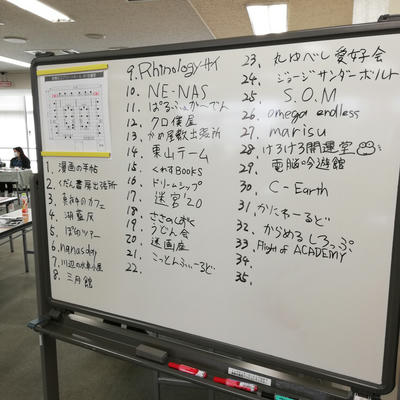 1. 漫画の手帖
2. くだん書房出張所
3. 長君のカフェ
4. 湖藍灰
5. ぽわツアー
6. nanasday
7. 川辺の水車小屋
8. 三月館
9. Rhinology-サイ
10. NE-NAS
11. ぱるふぁがーでん
12. クロ僕屋
13. かめ屋敷出張所
14. 東山チーム
15. くれすBooks
16. ドリームシップ
17. 迷宮'20
18. ささのしずく
19. うどん会
20. 迷画座
21. こっとんふぃーるど
22.
23. 丸ゆべし愛好会
24. ジョージサンダーボルト
25. S.O.M
26. omega endless
27. marisu
28. けろけろ開運堂
29. 電脳吟遊館
30. C-Earth
31. かにわーるど
32. からめるしろっぷ
33. Flight of ACADEMY
34.
35.